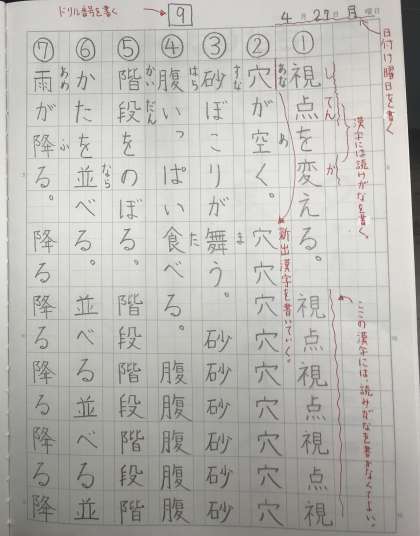 ドリル番号を書く
9
4月27日月曜日
日付け曜日を書く
①
視点を変える。視点視点視点視
してんか
漢字には読みがなを書く。
ここの漢字には、読みがなを書かなくてよい。
②
穴が空く。穴穴穴穴穴穴穴穴
あなあ
新出漢字を書いていく。
③
砂ぼこりが舞う。砂砂砂砂砂砂
すなま
④
腹いっぱい食べる。腹腹腹腹腹
はらた
⑤
階段をのぼる。階段階段階段階
かいだん
⑥
かたを並べる。並べる並べる並
なら
⑦
雨が降る。降る降る降る降る降
あめふ